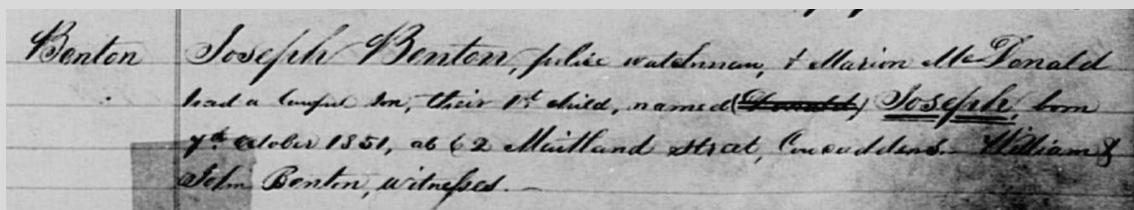 Benton Joseph Benton, police watchman, & Marion McDonald
had a lawful Son, their 1st child, named (Donald) Joseph, born
7th October 1851, at 62 Maitland Street, Cowcaddens. – William &
John Benton, witnesses. –